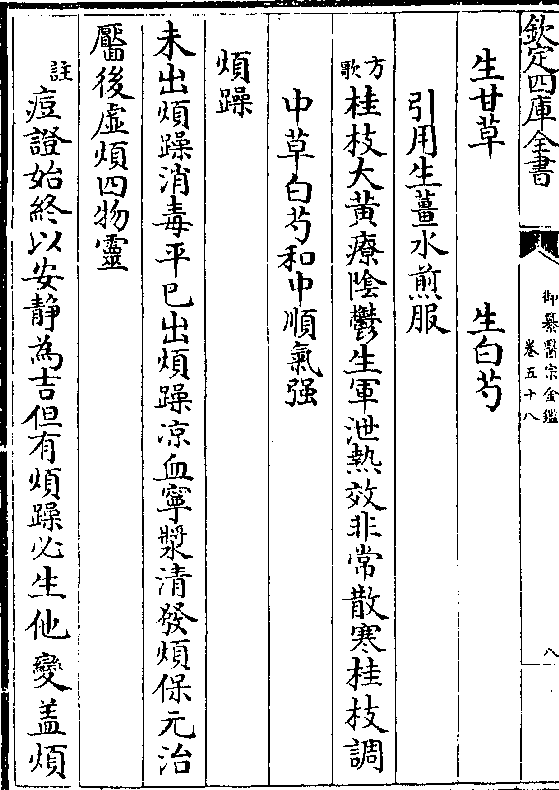 欽定四庫全書
御纂醫宗金鑑
卷五十八
八
生甘草 生白芍
引用生薑水煎服
方歌 桂枝大黃療陰鬱生軍泄熱效非常散寒桂枝調
中草白芍和中順氣强
煩躁
未出煩躁消毒平已出煩躁凉血寧漿清發煩保元治
靨後虛煩四物靈
註 痘證始終以安靜為吉但有煩躁必生他變盖煩